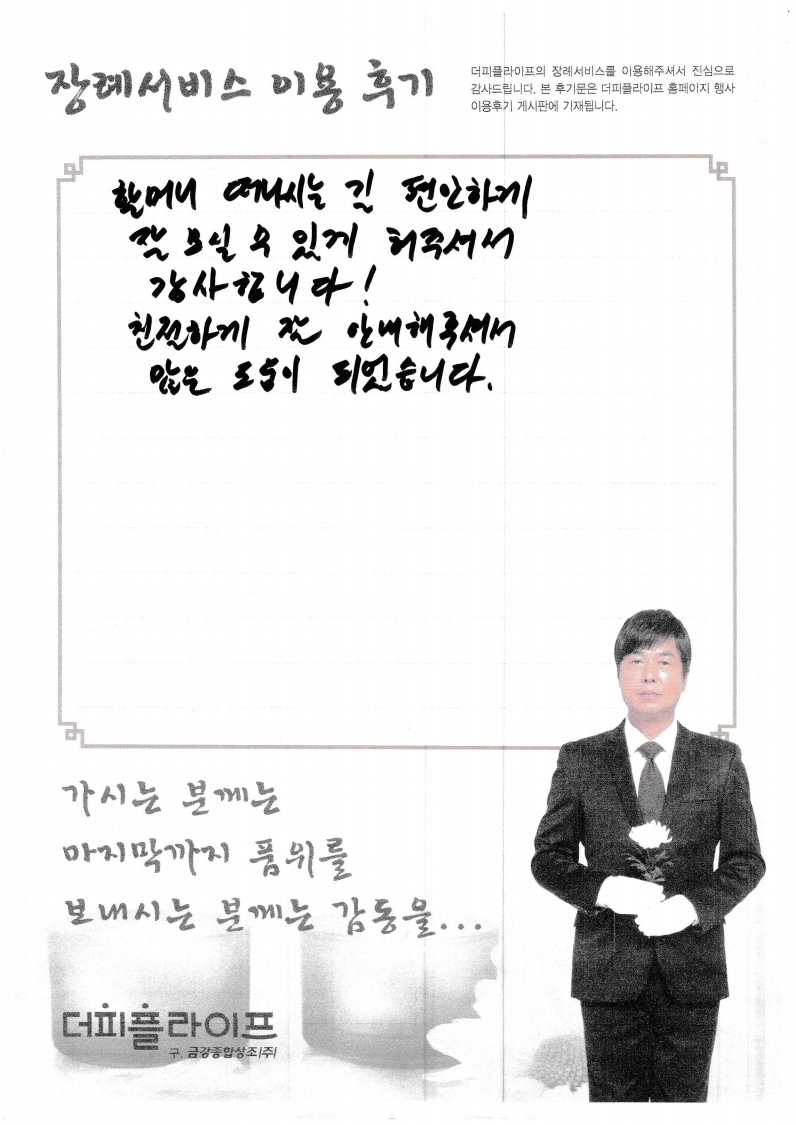 장례서비스 이용 후기
더피플라이프의 장례서비스를 이용해주셔서 진심으로
감사드립니다. 본 후기문은 더피플라이프 홈페이지 행사
이용후기 게시판에 기재됩니다.
할머니 떠나시는 길 편안하게
잘 모실 수 있게 해주셔서
감사합니다!
친절하게 잘 안내해주셔서
많은 도움이 되었습니다.
가시는 분께는
마지막까지 품위를
보내시는 분께는 감동을...
더피플라이프
구. 금강종합상조(주)